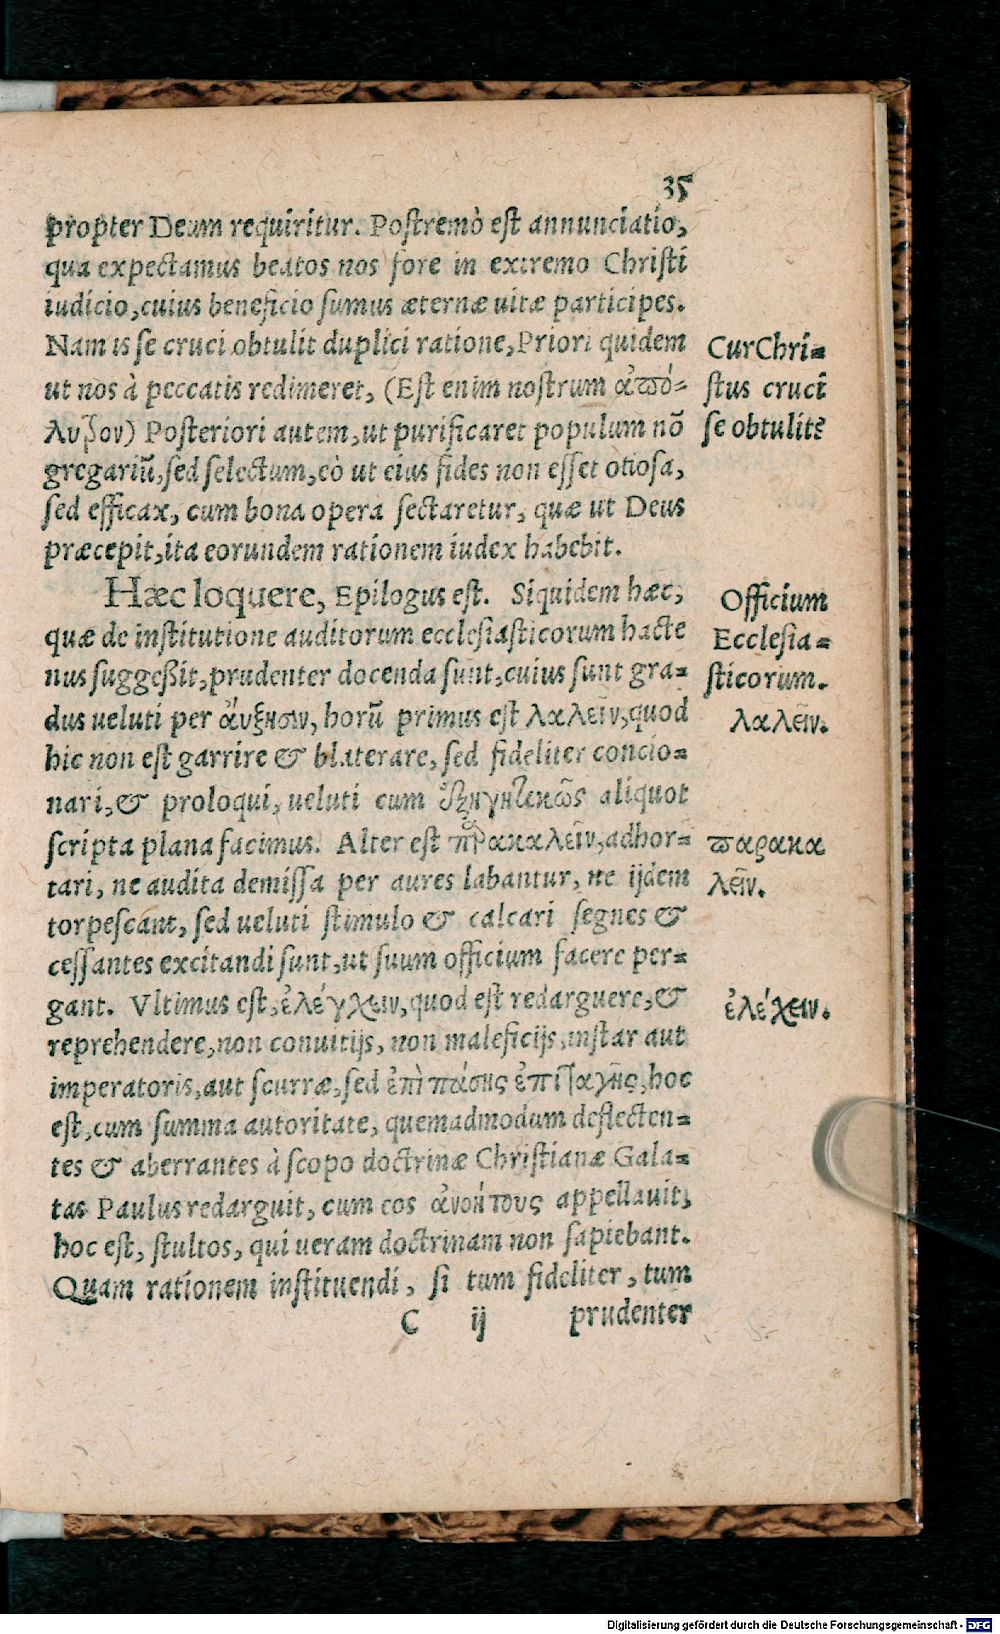 35
propter Deum requiritur. Postremò est annunciatio,
qua expectamus beatos nos fore in extremo Christi
iudicio, cuius beneficio sumus æternæ uitæ participes.
Nam is se cruci obtulit duplici ratione, Priori quidem
ut nos à peccatis redimeret, (Est enim nostrum ἀπό=
λυτρον) Posteriori autem, ut purificaret populum nõ
gregariũ, sed selectum, eò ut eius fides non esset otiosa,
sed efficax, cum bona opera sectaretur, quæ ut Deus
præcepit, ita eorundem rationem iudex habebit.
Hæc loquere, Epilogus est. Siquidem hæc,
quæ de institutione auditorum ecclesiasticorum hacte
nus suggeßit, prudenter docenda sunt, cuius sunt gra=
dus ueluti per ἄυξησιν, horũ primus est λαλεῖν, quod
hic non est garrire & blaterare, sed fideliter concio=
nari, & proloqui, ueluti cum ἐξηγητικῶς aliquot
scripta plana facimus. Alter est παρακαλεῖν, adhor=
tari, ne audita demissa per aures labantur, ne ijdem
torpescant, sed ueluti stimulo & calcari segnes &
cessantes excitandi sunt, ut suum officium facere per=
gant. Vltimus est, ἐλέγχειν, quod est redarguere, &
reprehendere, non conuitijs, non maleficijs, instar aut
imperatoris, aut scurræ, sed ἐπὶ πάσης ἐπιταγῆς, hoc
est, cum summa autoritate, quemadmodum deflecten=
tes & aberrantes à scopo doctrinæ Christianæ Gala=
tas Paulus redarguit, cum eos ἀνοήτους appellauit,
hoc est, stultos, qui ueram doctrinam non sapiebant.
Quam rationem instituendi, si tum fideliter, tum
C ij prudenter
Cur Chri=
stus cruci
se obtulit?
Officium
Ecclesia=
sticorum.
λαλεῖν.
παρακα
λεῖν.
ἐλέχειν.
Digitalisierung gefördert durch die Deutsche Forschungsgemeinschaft - DFG